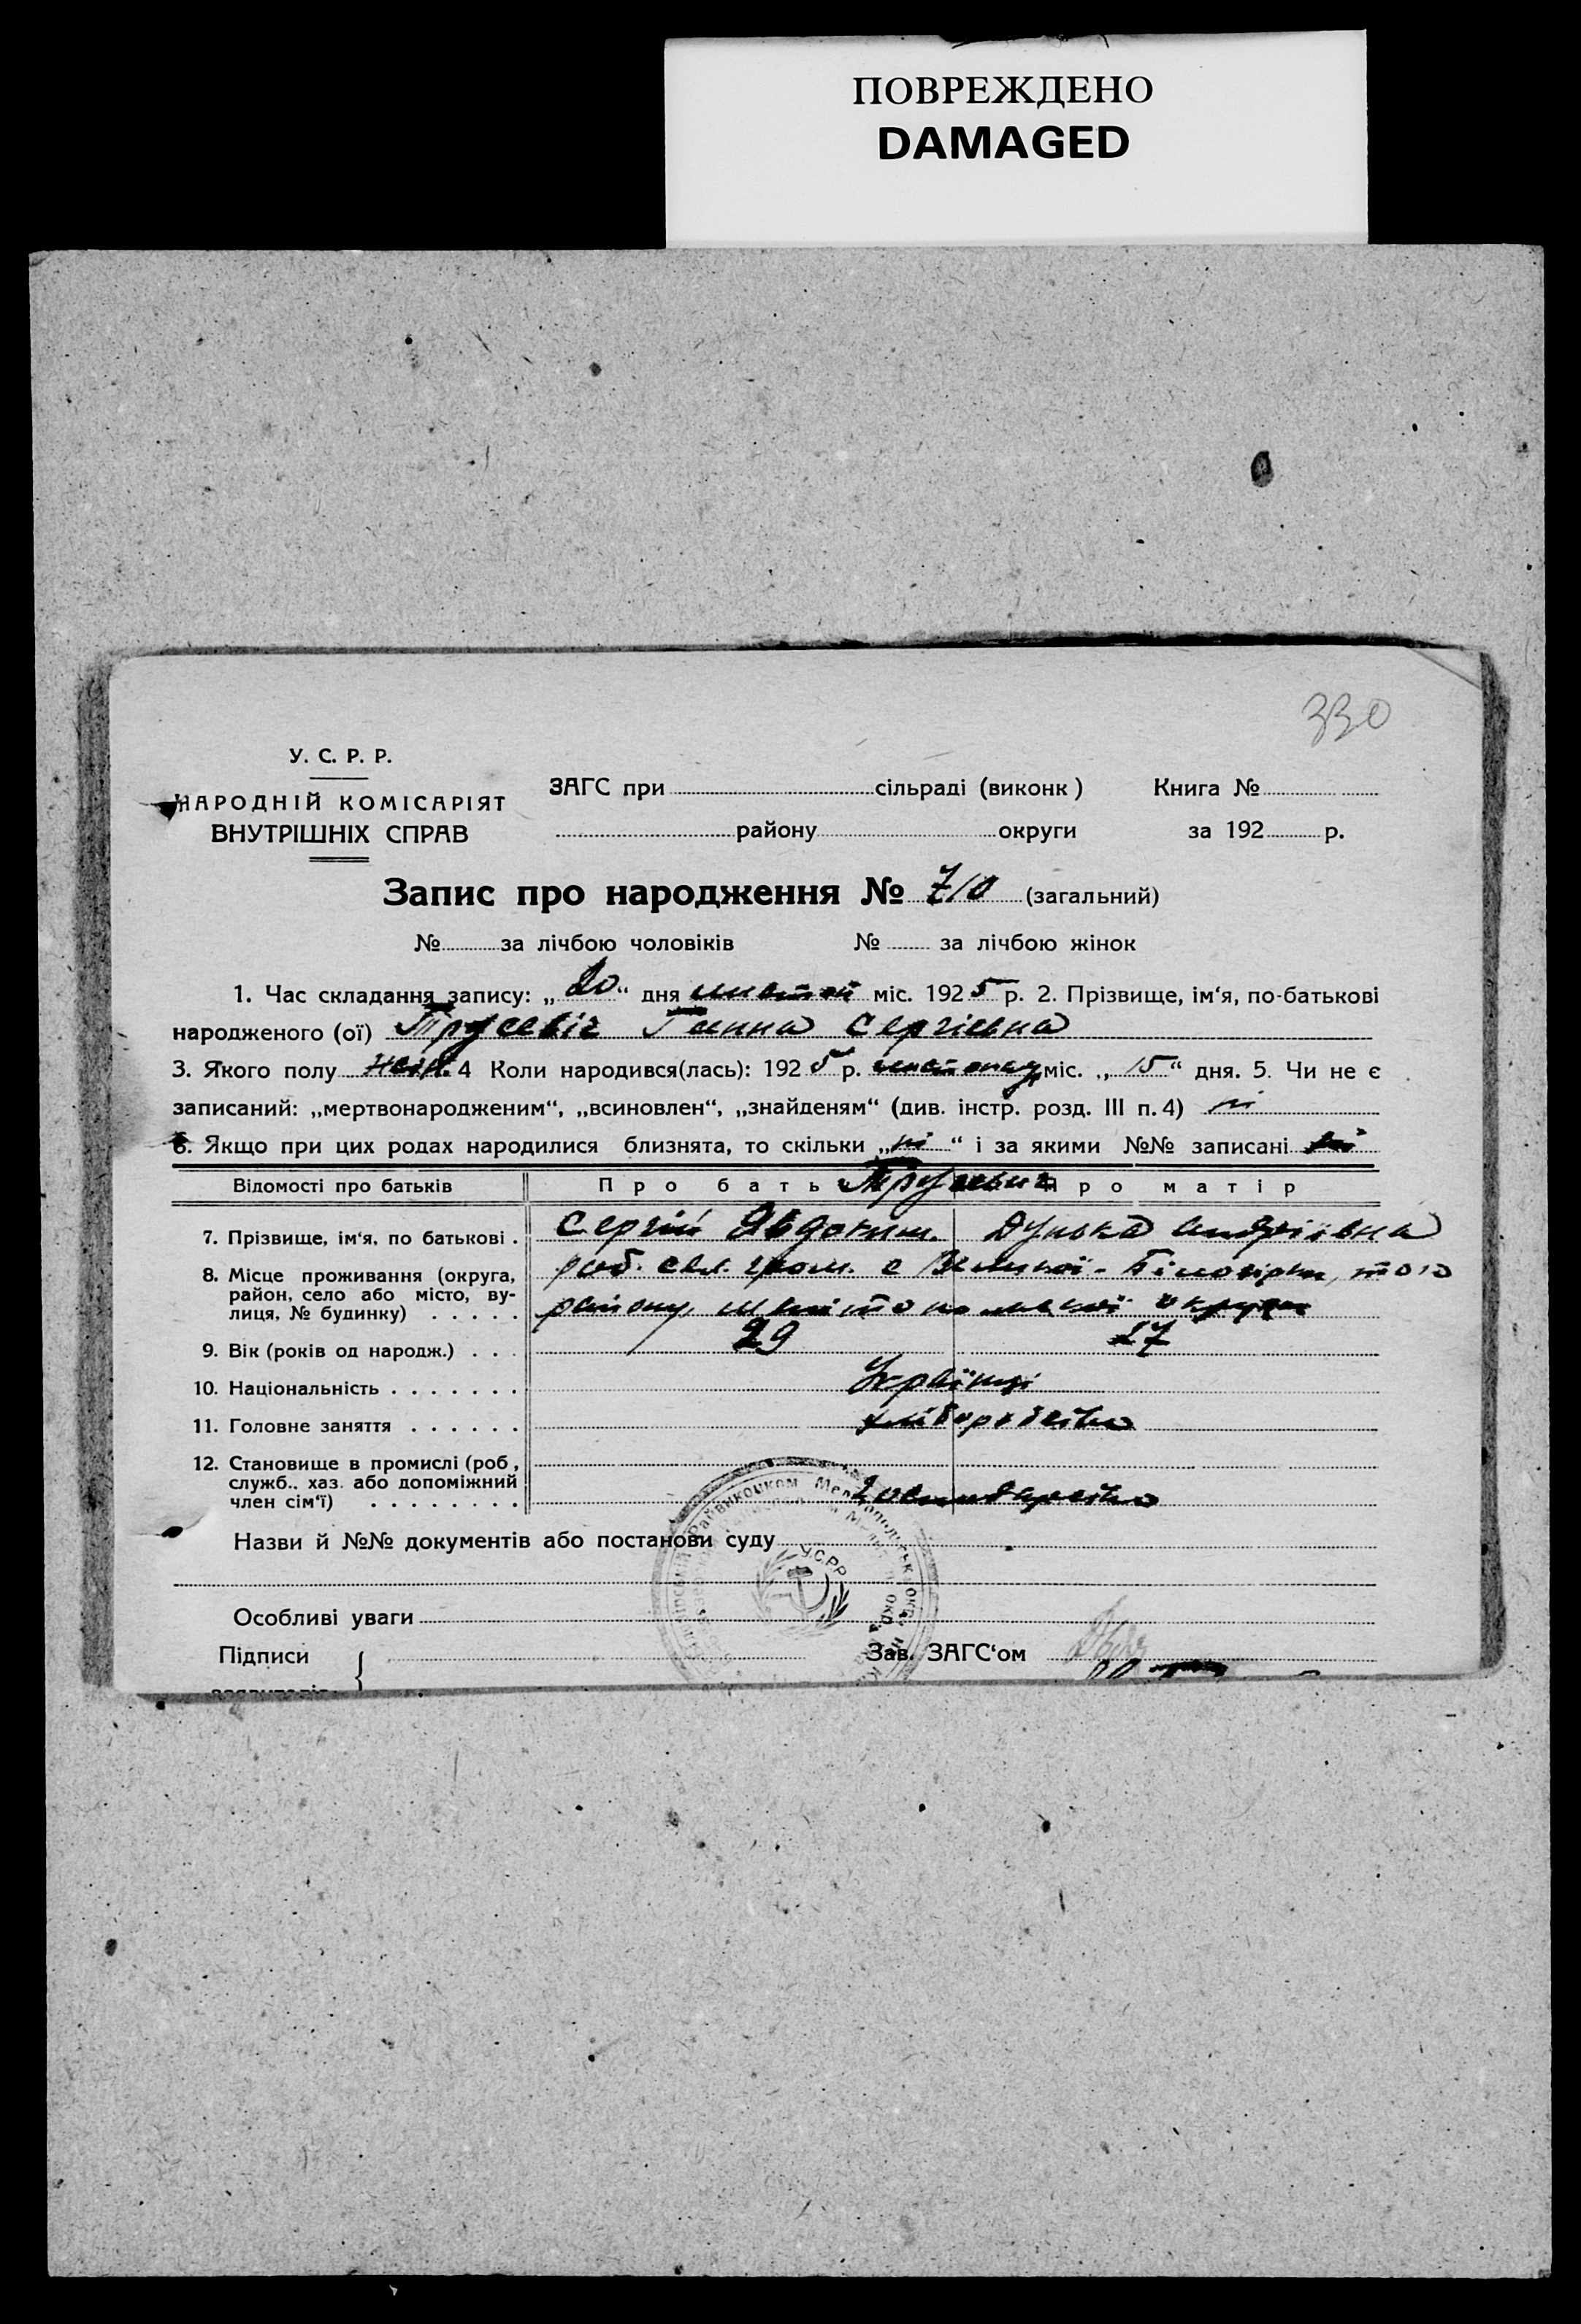 ПОВРЕЖДЕНО
DAMAGED
330
У. С. Р. Р.
НАРОДНІЙ КОМІСАРІЯТ
ВНУТРІШНІХ СПРАВ
ЗАГС при сільраді (виконк) Книга №
району округи за 192 р.
Запис про народження № 710 (загальний)
№ за лічбою чоловіків № за лічбою жінок
1. Час складання запису: „20“ дня листоп міс. 1925 р. 2. Прізвище, ім‘я, по-батькові
народженого (ої) Трусевіч Ганна Сергієвна
3. Якого полу жін. 4 Коли народився(лась): 1925 р. листопад міс. „15“ дня. 5. Чи не є
записаний: „мертвонародженим“, „всиновлен“, „знайденям“ (див. інстр. розд. III п. 4) ні
6. Якщо при цих родах народилися близнята, то скільки „ні“ і за якими №№ записані ні
Відомості про батьків Про батька Про матір
Трусевич
7. Прізвище, ім‘я, по батькові . Сергій Явдоким. Дунька Андріівна
8. Місце проживання (округа, район, село або місто, вулиця, № будинку) . . . . . сел. гром. с Великої-Білозірки, того
району, окр
9. Вік (років од народж.) . . . 29 27
10. Національність . . . . . . . Українці
11. Головне заняття . . . . . . хліборобство
12. Становище в промислі (роб, служб., хаз. або допоміжний член сім‘ї) . . . . . . . . господарство
Назви й №№ документів або постанови суду
У.С.Р.Р.
Особливі уваги
Підписи
Зав. ЗАГС‘ом